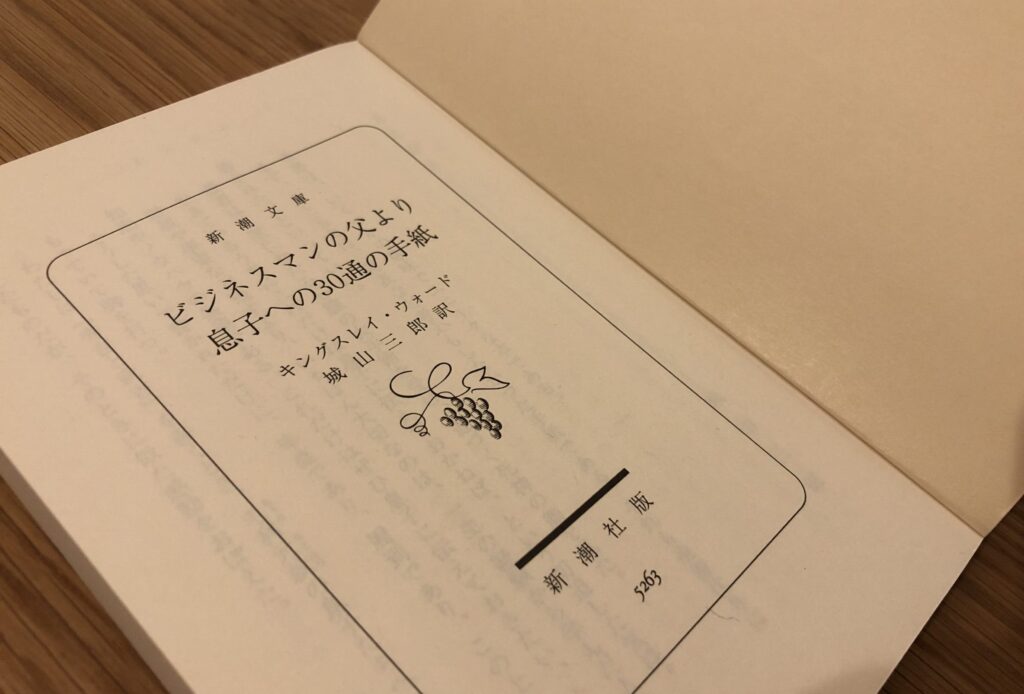 新潮文庫
ビジネスマンの父より
息子への30通の手紙
キングスレイ・ウォード
城山三郎訳
新潮社版
5263